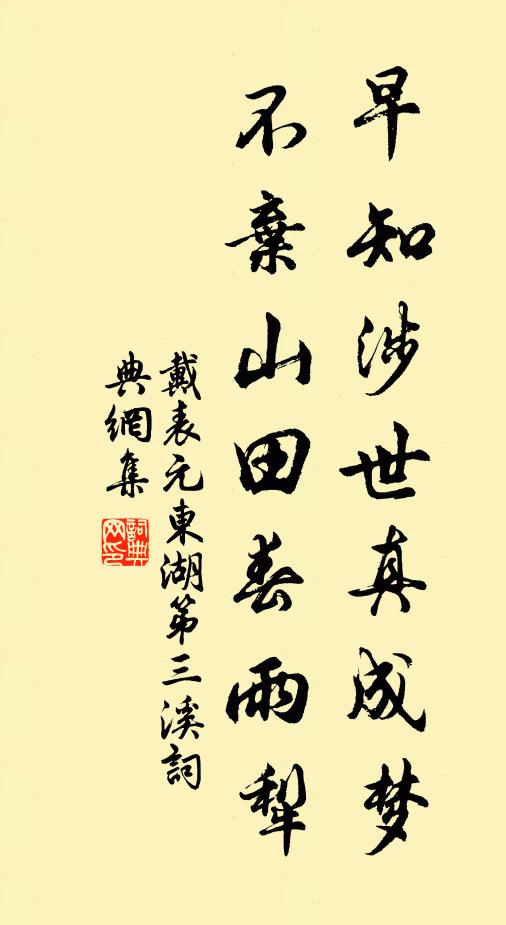 早知涉世真成梦
不棄山田春雨犁
戴表元東湖第三溪詞
典網集
詞典
网印